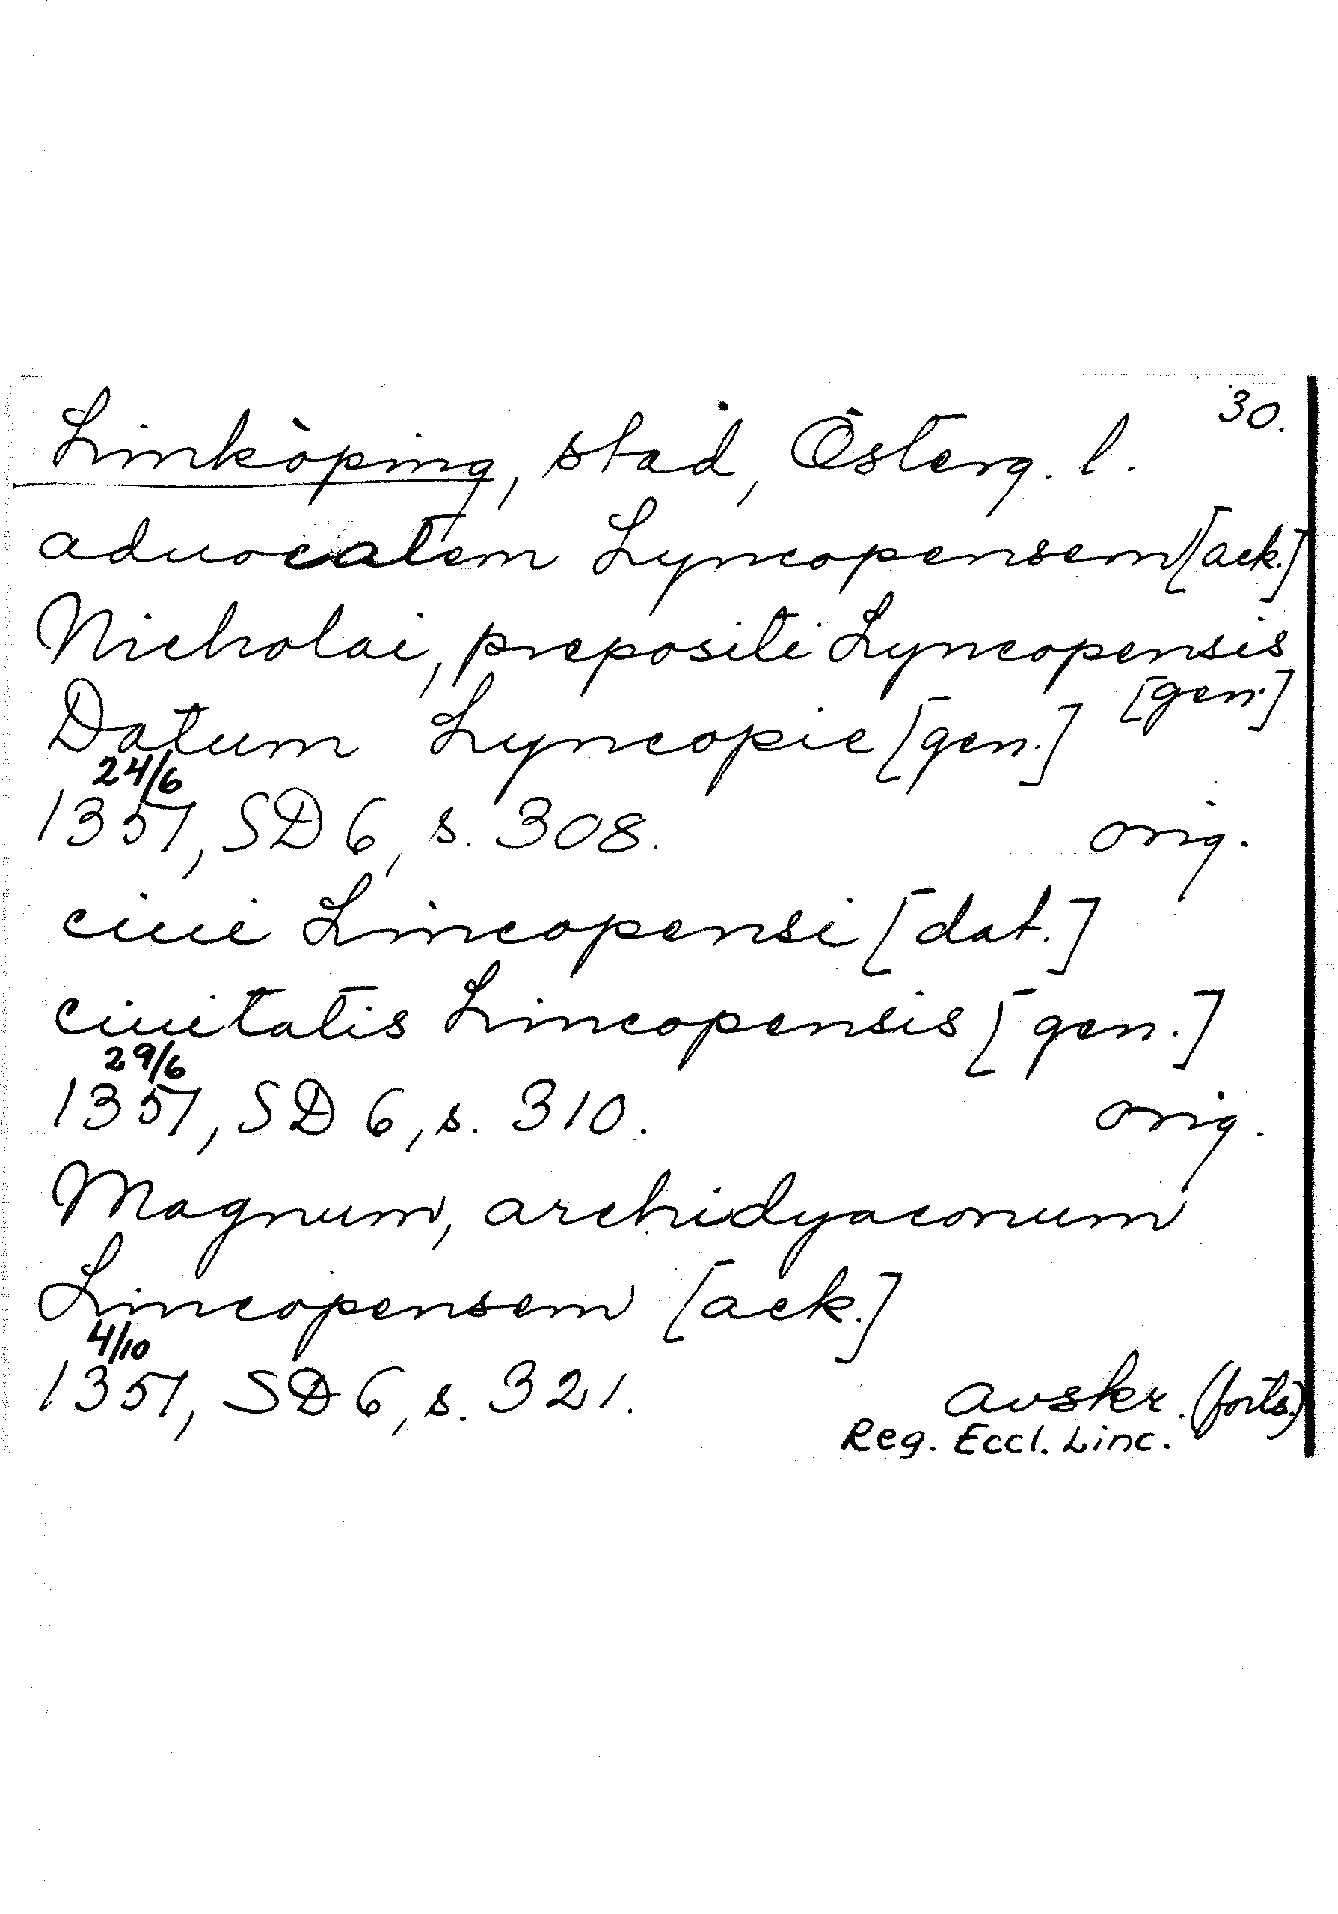 30.
Linköping, stad, Österg. l.
aduocatem Lyncopensem [ack.]
Nicholai, prepositi Lyncopensis
[gen.]
Datum Lyncopie [gen.]
24/6
1351, SD 6, s. 308. orig.
ciui Lincopensi [dat.]
ciuitatis Lincopensis [gen.]
29/6
1351, SD 6, s. 310. orig.
Magnum, archidyaconum
Lincopensem [ack.]
4/10
1351, SD 6, s. 321. avskr. (forts.)
Reg. Eccl. Linc.